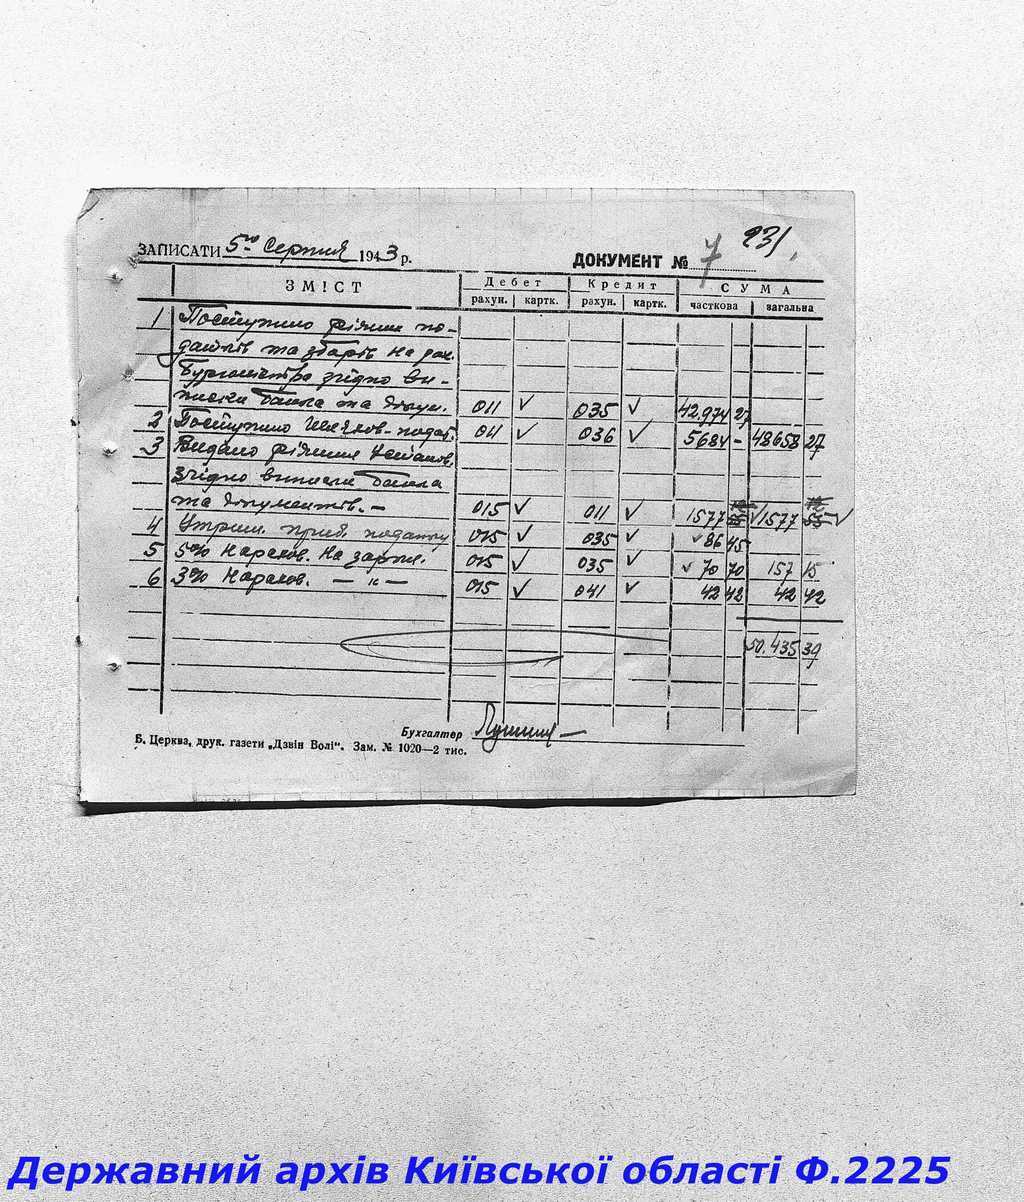 231.
ЗАПИСАТИ 5го Серпня 1943 р. ДОКУМЕНТ № 7
ЗМІСТ Дебет Кредит СУМА
рахун. картк. рахун. картк. часткова загальна
1 Поступило різних по-
датків та зборів на рах.
Бургомістра згідно ви-
писки банка та докум. 011 ✓ 035 ✓ 42.974 27
2 Поступило подат. 011 ✓ 036 ✓ 5684 – 48658 27
3 Видано різним установ.
згідно виписки банка
та документів. – 015 ✓ 011 ✓ 1577 55 ✓ 1577 55 ✓
4 Утрим. приб. податку 015 ✓ 035 ✓ ✓ 86 45
5 5% Нарахов. на зарпл. 015 ✓ 035 ✓ ✓ 70 70 157 15
6 3% Нарахов. — " — 015 ✓ 041 ✓ 42 42 42 42
50.435 39
Бухгалтер
Б. Церква, друк. газети „Дзвін Волі“. Зам. № 1020—2 тис.
Державний архів Київської області Ф.2225